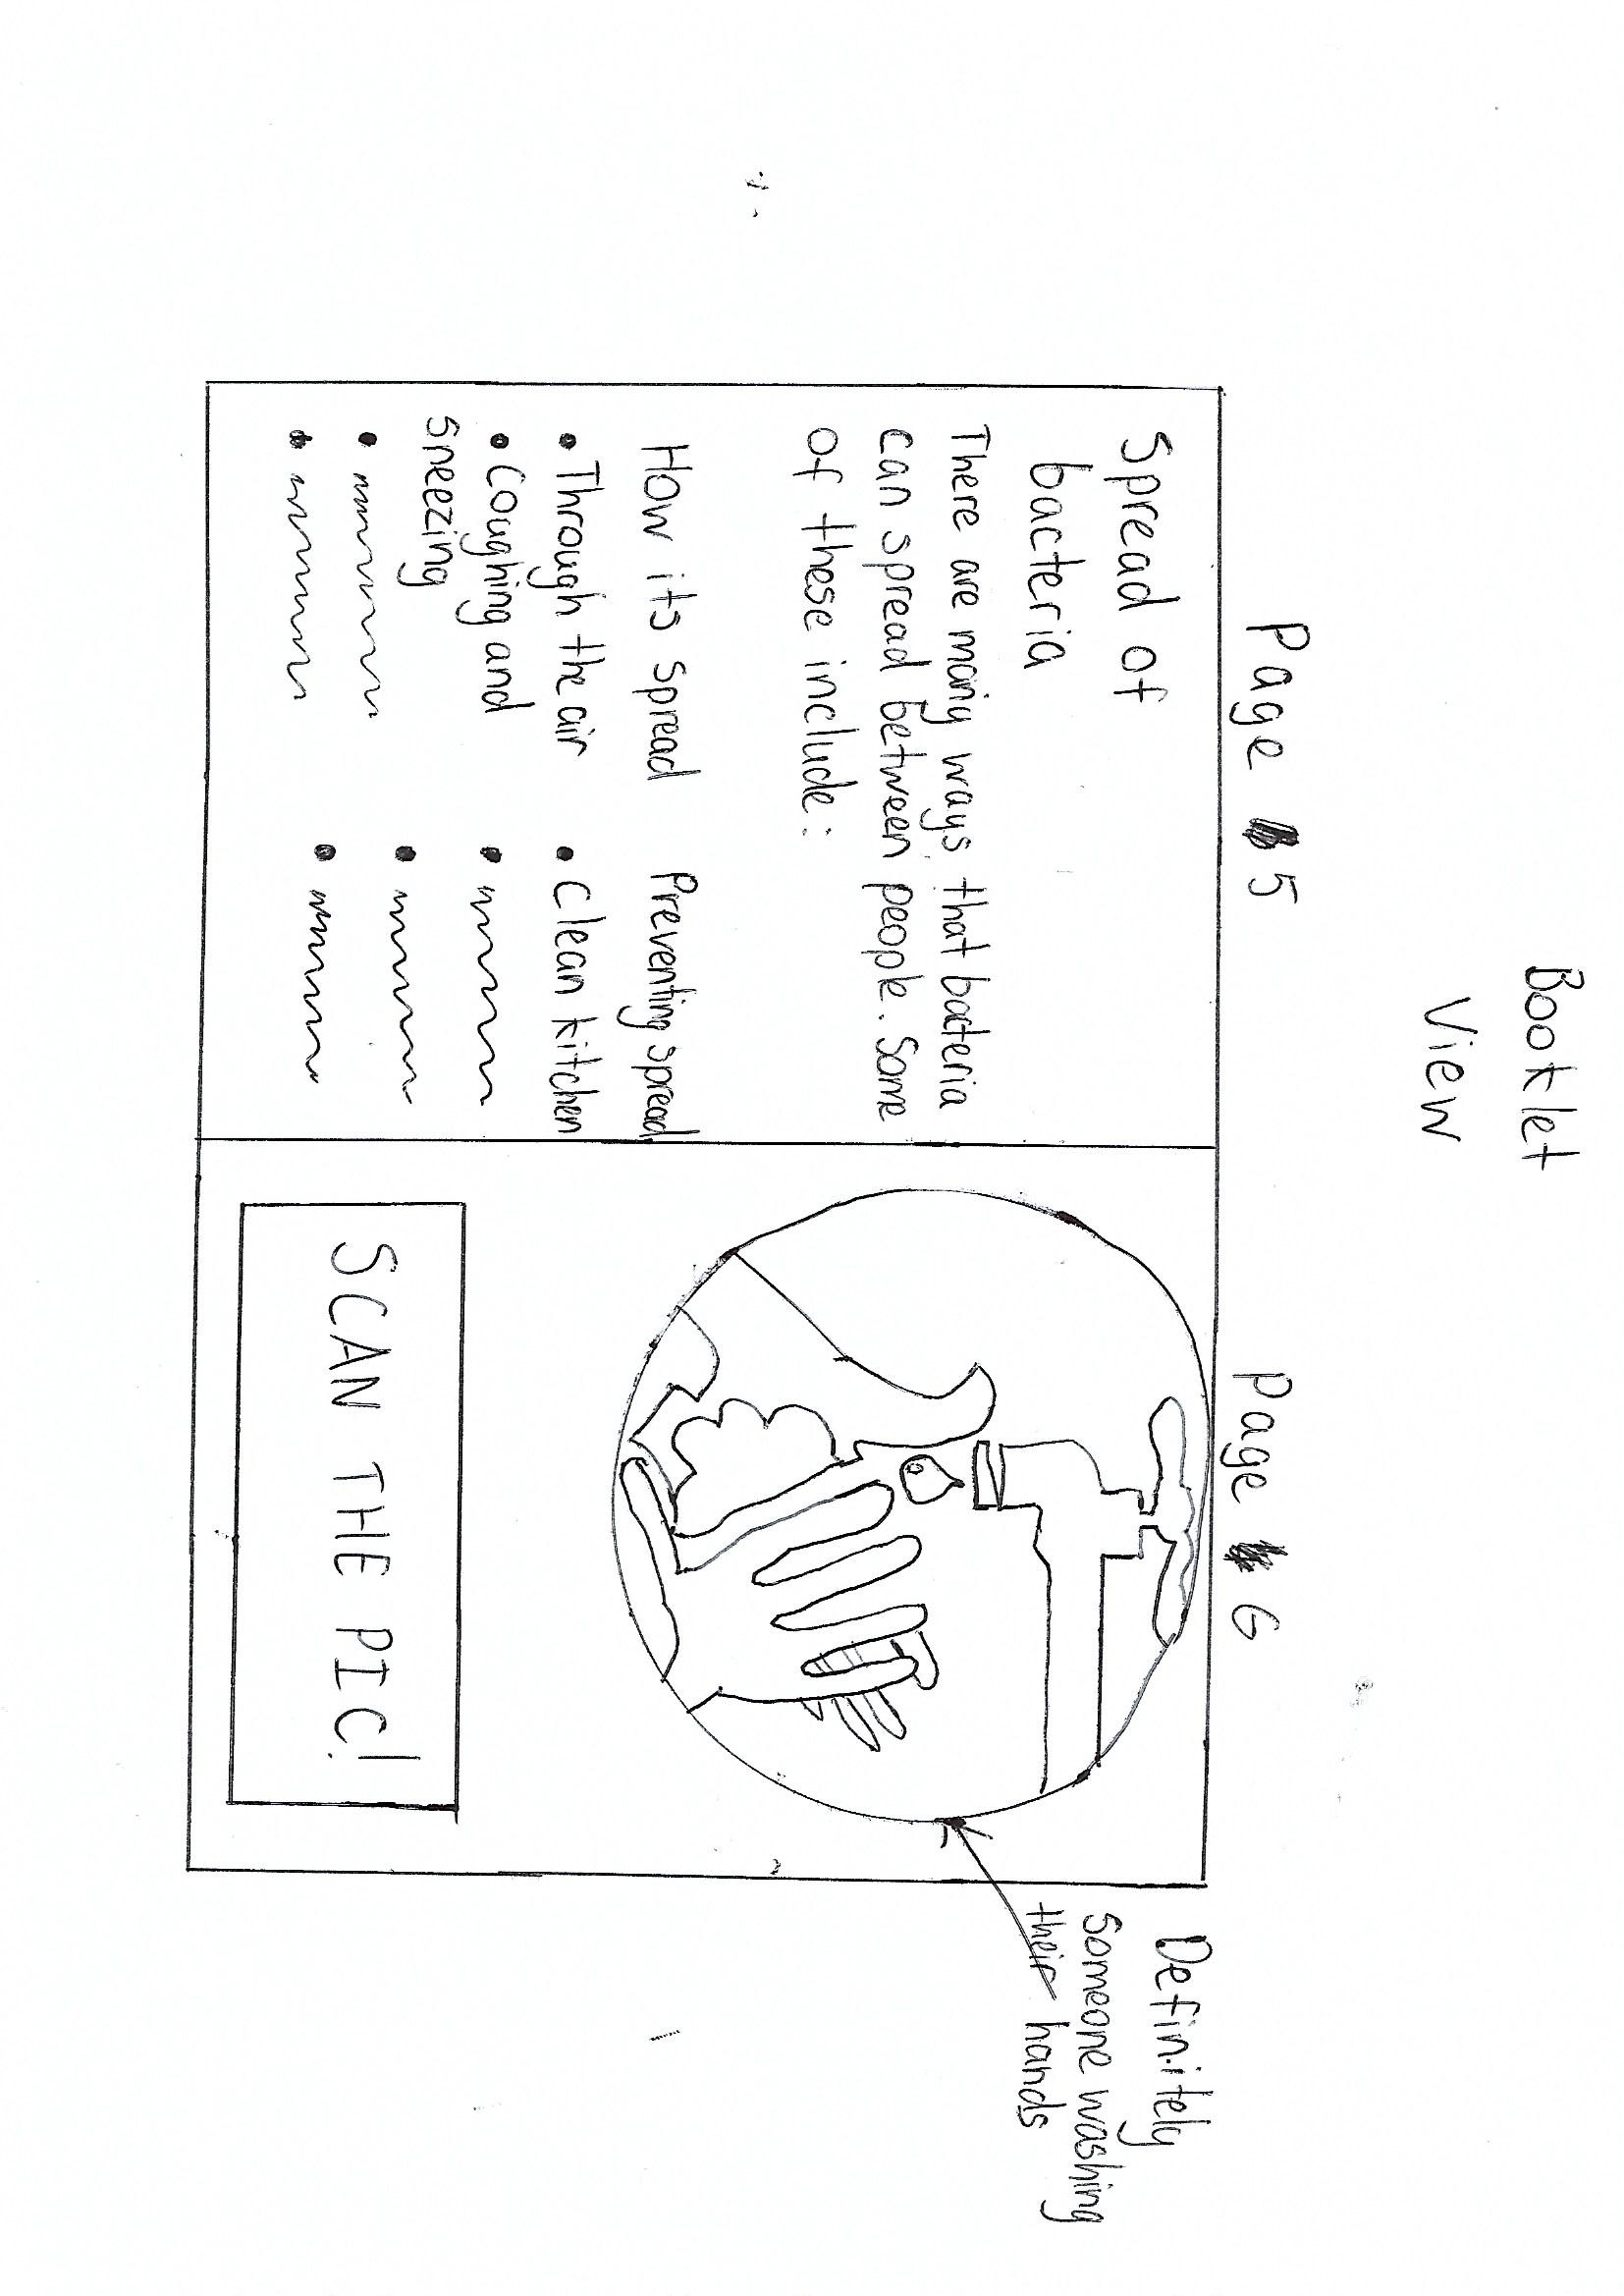 Booklet
View
Page 5
Spread of
bacteria
There are many ways that bacteria
can spread between people. Some
of these include:
How its spread
• Through the air
• Coughing and
sneezing
Preventing spread
• Clean kitchen
Page 6
SCAN THE PIC!
Definitely
someone washing
their hands